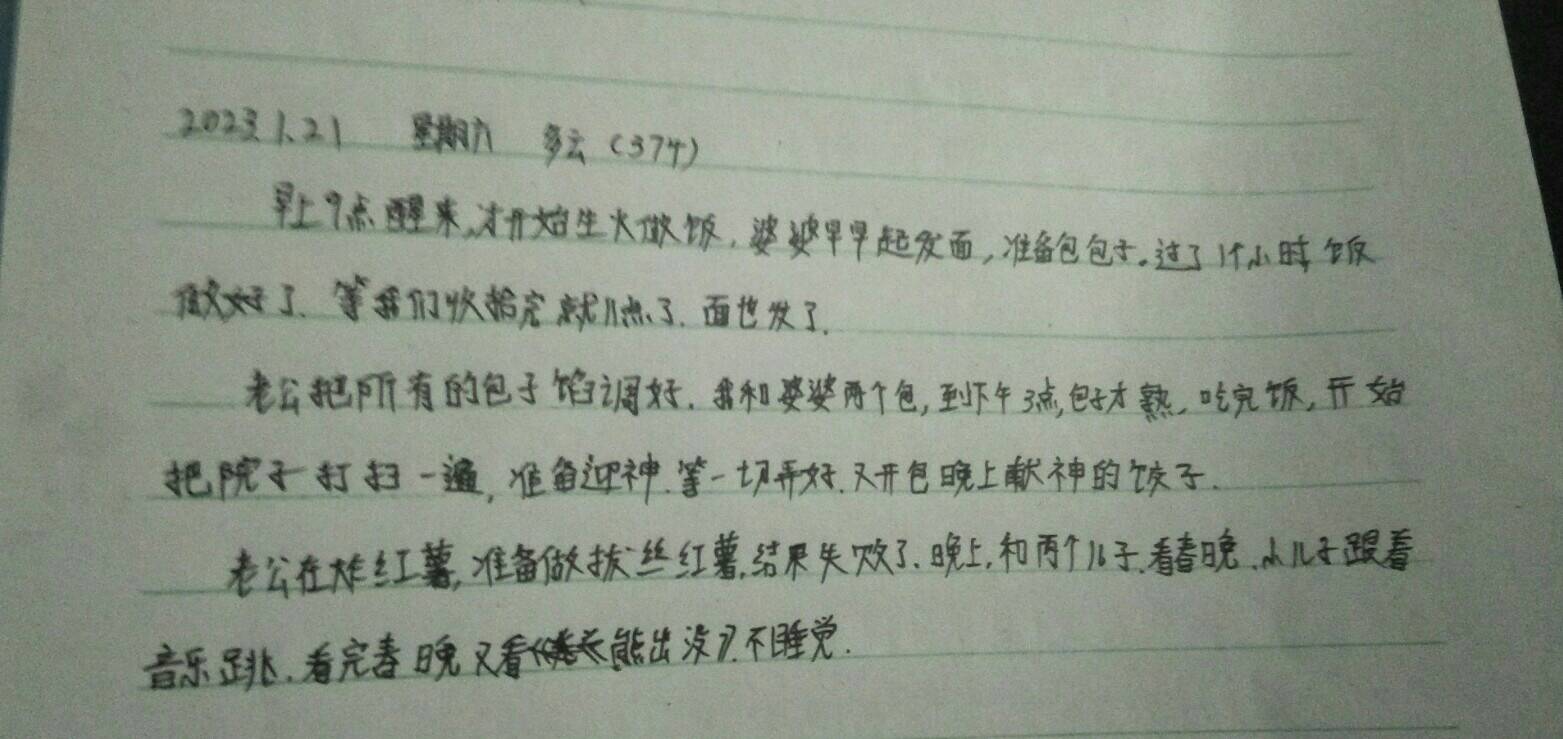 2023.1.21 星期六 多云(374)
早上9点醒来,才开始生火做饭,婆婆早早起发面,准备包包子。过了1个小时,饭
做好了、等我们收拾完就11点了、面也发了、
老公把所有的包子馅调好、我和婆婆两个包,到下午3点,包子才熟,吃完饭,开始
把院子打扫一遍,准备迎神、等一切弄好、又开包晚上献神的饺子、
老公在炸红薯,准备做拔丝红薯,结果失败了、晚上,和两个儿子、看春晚、小儿子跟着
音乐跳、看完春晚又看《熊出没》、不睡觉、